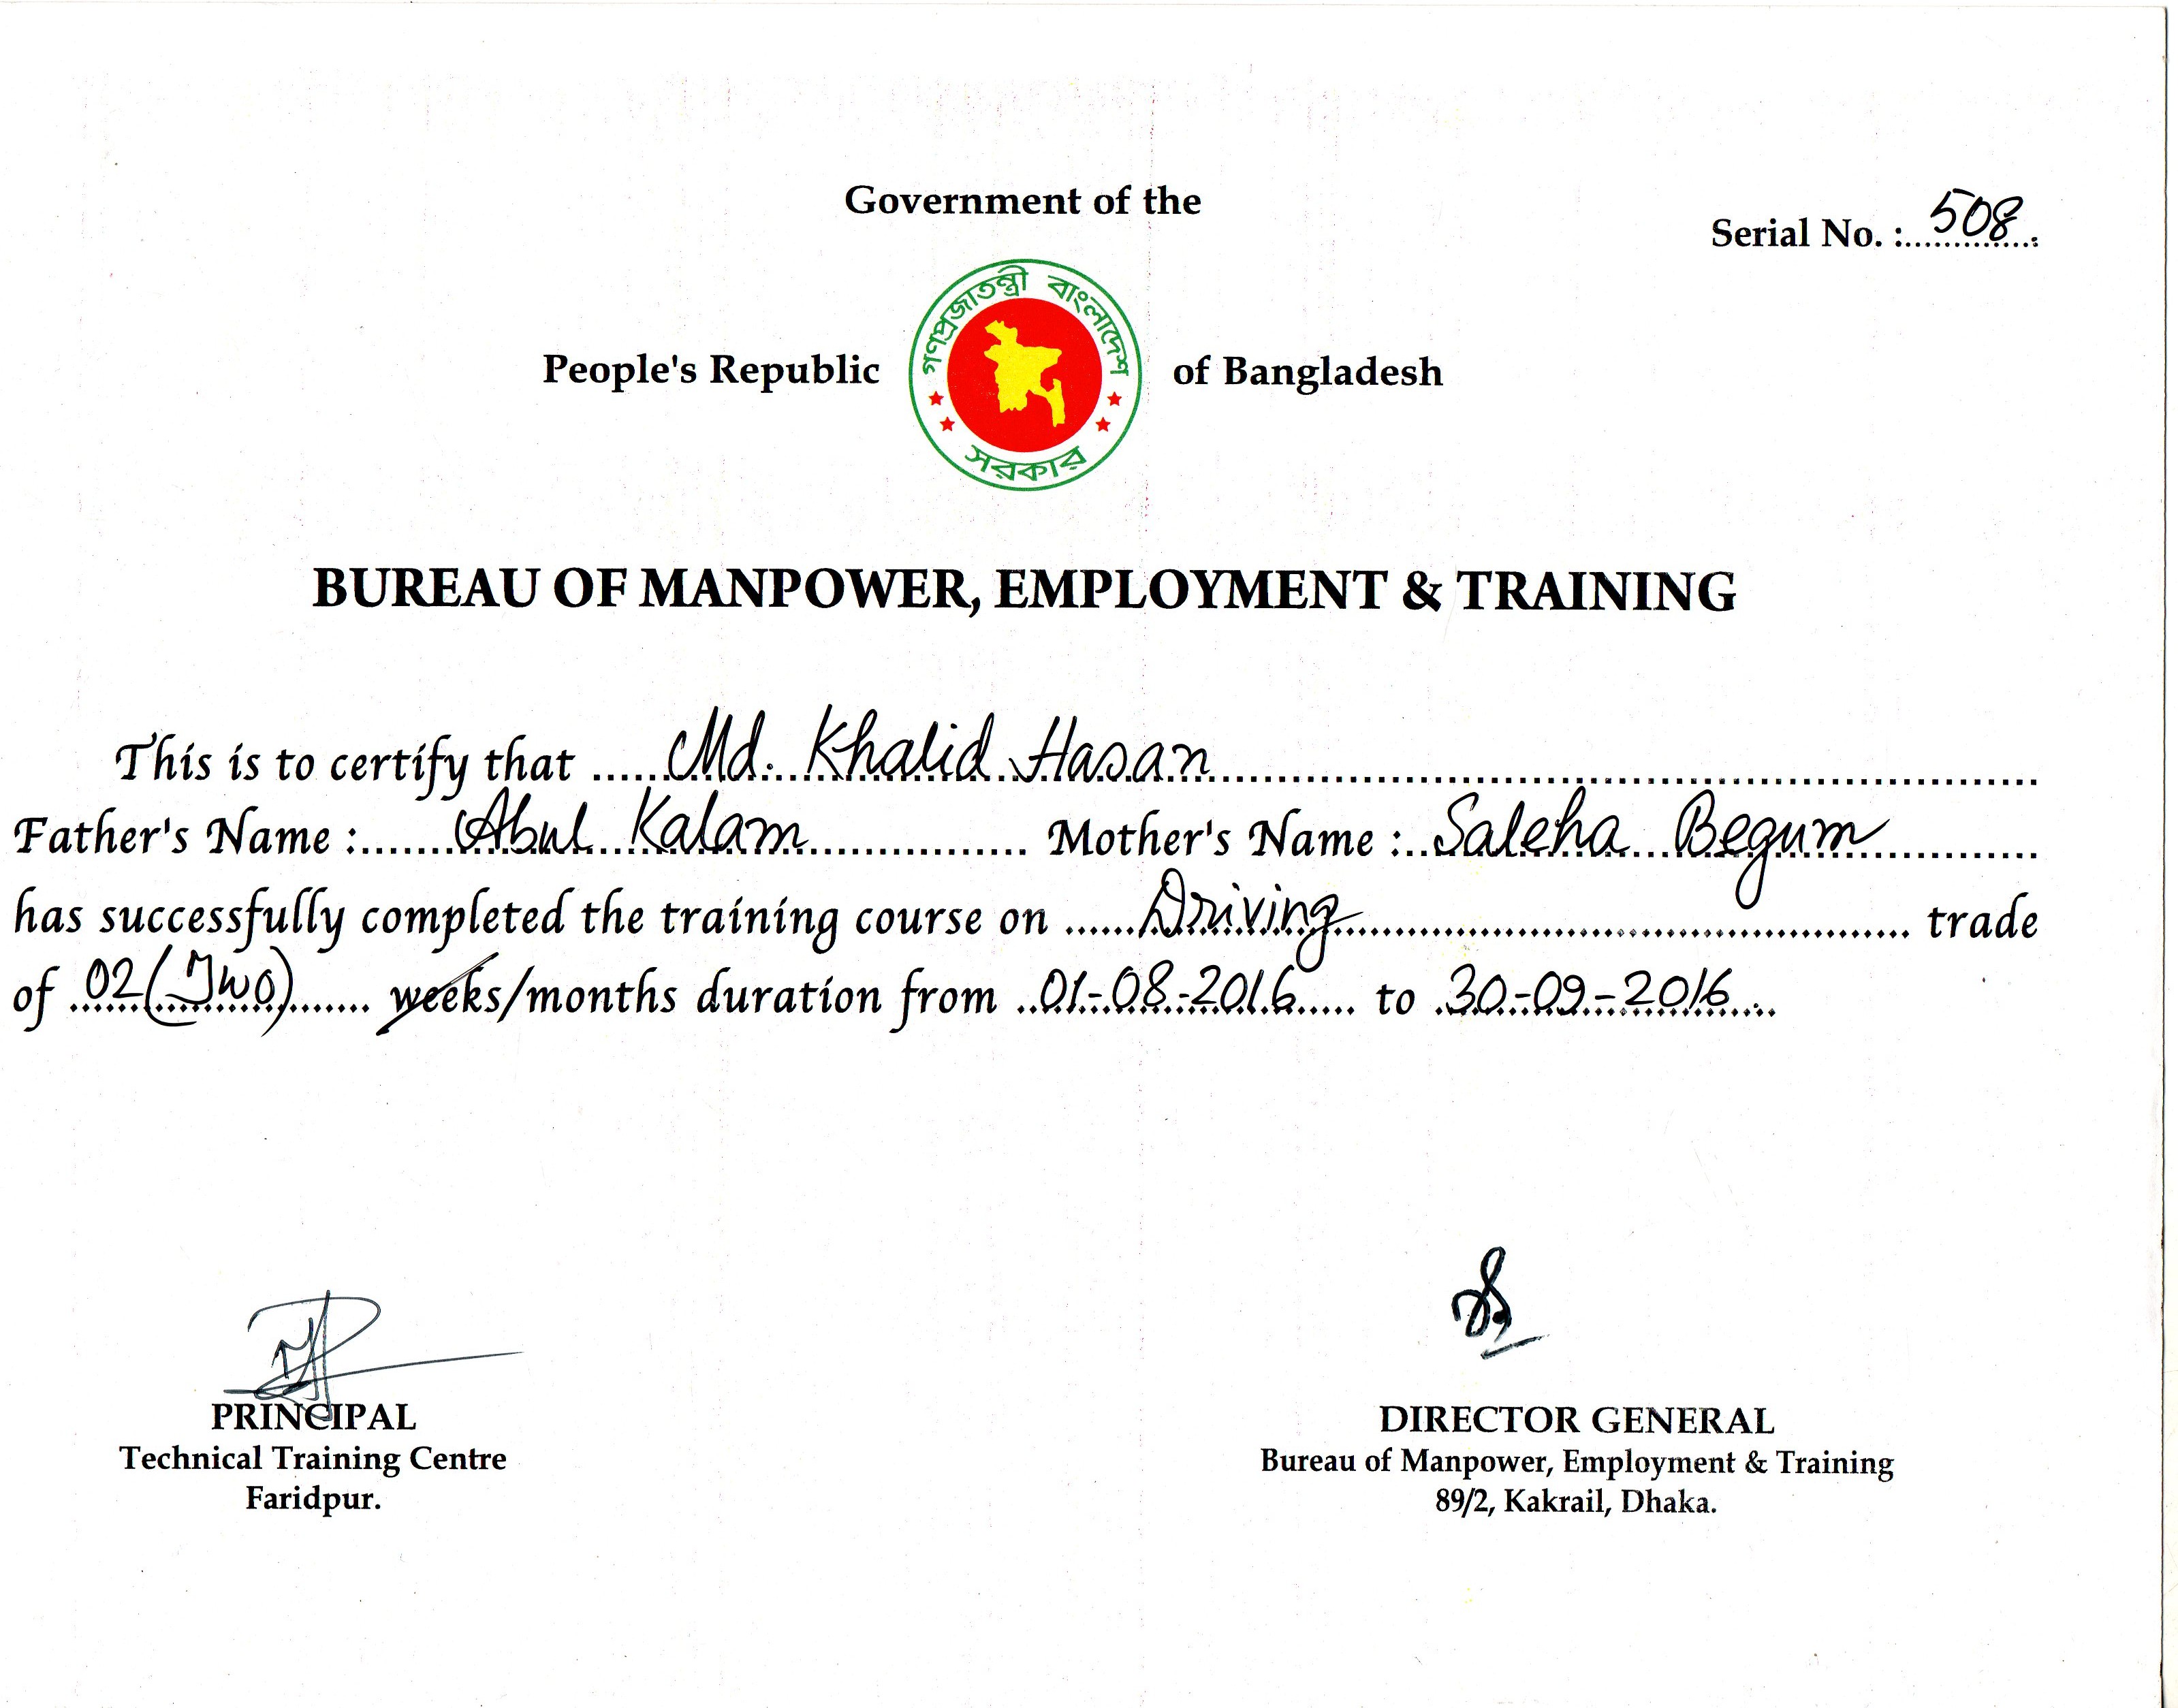 Government of the
Serial No. : 508.
গণপ্রজাতন্ত্রী বাংলাদেশ
People's Republic of Bangladesh
সরকার
BUREAU OF MANPOWER, EMPLOYMENT & TRAINING
This is to certify that Md. Khalid Hasan
Father's Name : Abul Kalam Mother's Name : Saleha Begum
has successfully completed the training course on Driving trade
of 02 (Two) weeks/months duration from 01-08-2016 to 30-09-2016
PRINCIPAL
Technical Training Centre
Faridpur.
DIRECTOR GENERAL
Bureau of Manpower, Employment & Training
89/2, Kakrail, Dhaka.